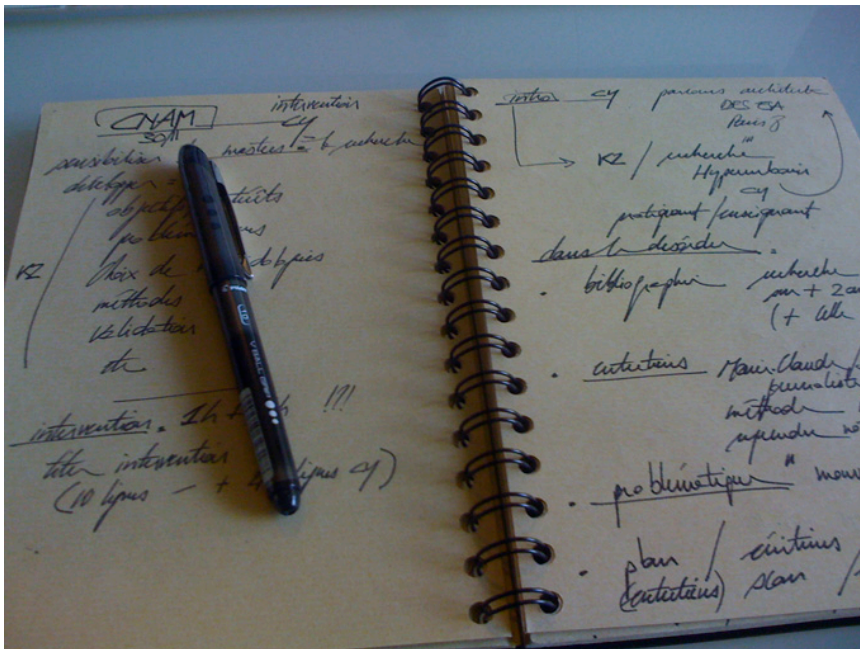 CNAM intervention
cy
sensibiliser masters = la recherche
développer =
objectifs
KZ
choix de
méthodes
validation
etc
intervention = 1h !!!
titre intervention
(10 lignes — + lignes cy)
V BALL
intro cy parcours architecte
DESESA
Paris 8
KZ / recherche
Hyperurbain
cy
pratiquant / enseignant
dans le désordre =
• bibliographie recherche
sur + 2 an
(+ celle
• entretiens Marie-Claude
journaliste
méthode
reprendre
• problématique "
• plan / écritins
(entretiens) scan /